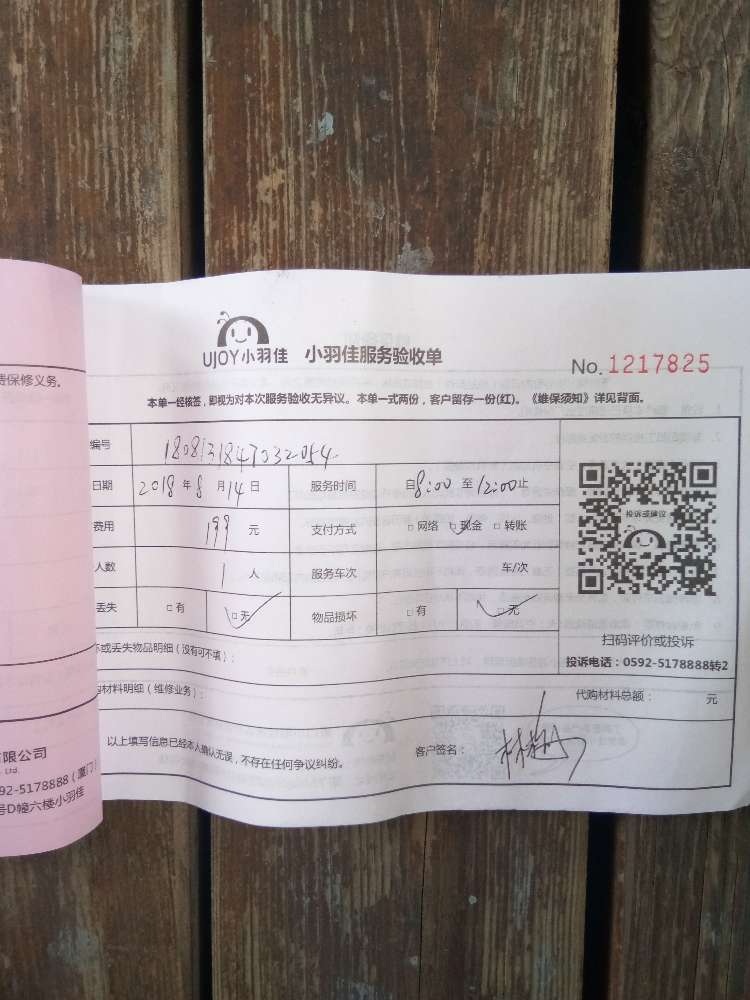 UJOY小羽佳 小羽佳服务验收单
No. 1217825
本单一经核签，即视为对本次服务验收无异议。本单一式两份，客户留存一份(红)。《维保须知》详见背面。
编号 1808131847032054
日期 2018 年 8 月 14 日 服务时间 自 8:00 至 12:00 止
费用 199 元 支付方式 □网络 □现金 □转账
人数 1 人 服务车次 车/次
丢失 □有 □无 物品损坏 □有 □无
投诉或建议
扫码评价或投诉
投诉电话：0592-5178888转2
或丢失物品明细（没有可不填）：
材料明细（维修业务）： 代购材料总额： 元
以上填写信息已经本人确认无误，不存在任何争议纠纷。 客户签名：
费保修义务。
限公司
Ltd.
92-5178888（厦门
号D幢六楼小羽佳